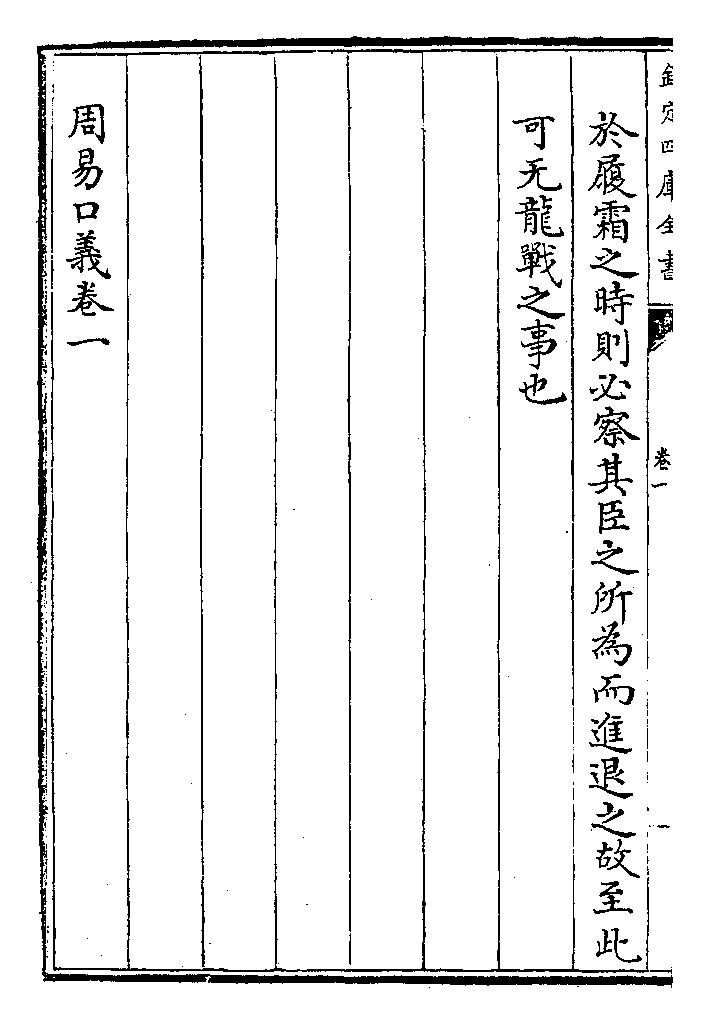 欽定四庫全書
卷一
於履霜之時則必察其臣之所為而進退之故至此
可无龍戰之事也
周易口義卷一